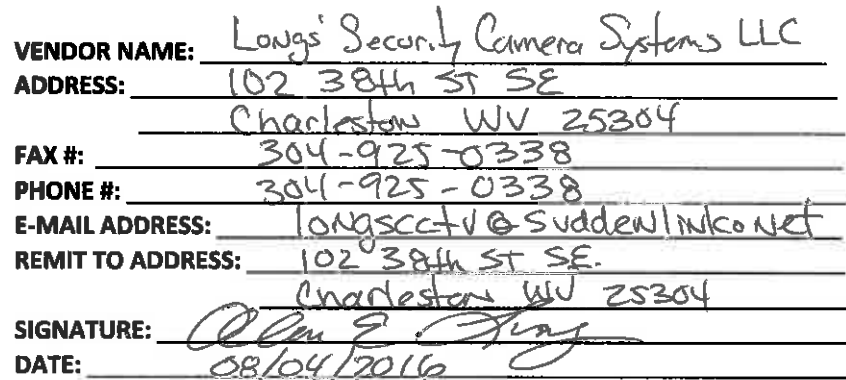 VENDOR NAME: Longs' Security Camera Systems LLC
ADDRESS: 102 38th ST SE
Charleston WV 25304
FAX #: 304-925-0338
PHONE #: 304-925-0338
E-MAIL ADDRESS: longscctv@suddenlink.net
REMIT TO ADDRESS: 102 38th ST SE.
Charleston WV 25304
SIGNATURE: Alan E. Long
DATE: 08/04/2016